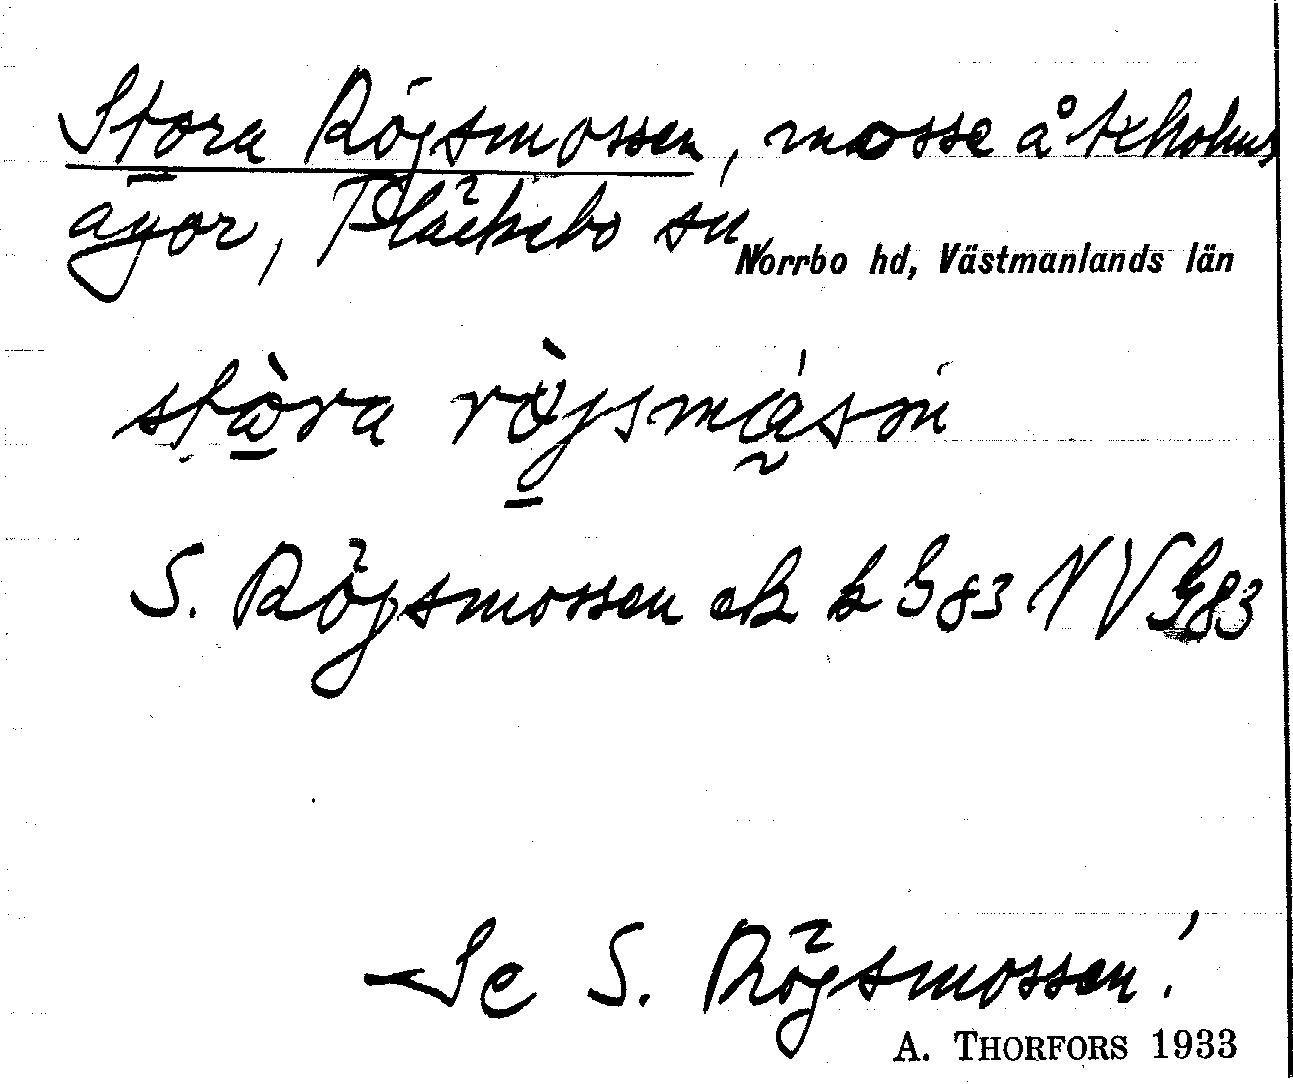 Stora Rögsmossen, mosse å Axholms
ägor, Fläckebo sn
Norrbo hd, Västmanlands län
stòra rö̀jsmåsm
S. Röjsmossen ek k G83 NV G83
Se S. Rögsmossen!
A. THORFORS 1933